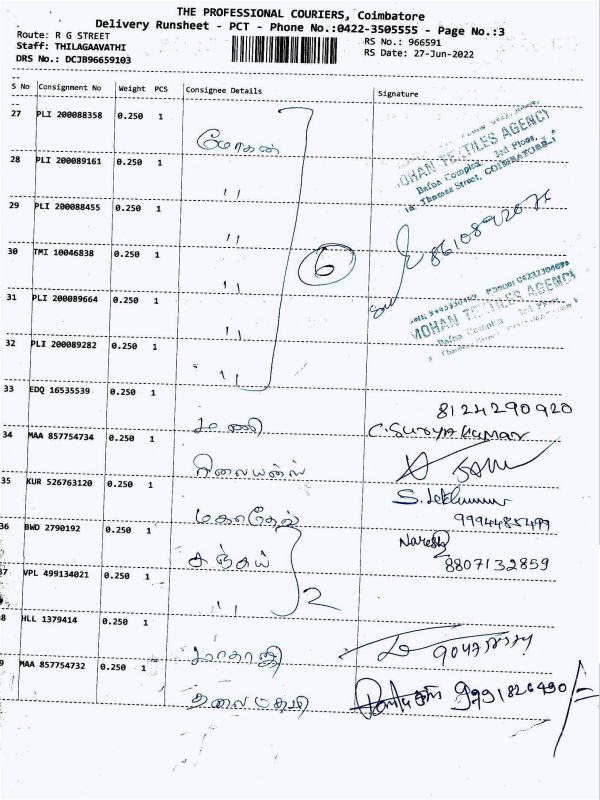 THE PROFESSIONAL COURIERS, Coimbatore
Delivery Runsheet - PCT - Phone No.:0422-3505555 - Page No.:3
Route: R G STREET
RS No.: 966591
Staff: THILAGAAVATHI
RS Date: 27-Jun-2022
DRS No.: DCJB96659103
S No Consignment No Weight PCS Consignee Details Signature
27 PLI 200088358 0.250 1 மோகன்
MOHAN TEXTILES AGENCY
Bafna Complex, 3rd Floor,
Thomas Street, COIMBATORE-1
28 PLI 200089161 0.250 1 〃
29 PLI 200088455 0.250 1 〃
30 TMI 10046838 0.250 1 〃
6
31 PLI 200089664 0.250 1 〃
MOHAN TEXTILES AGENCY
Bafna Complex 3rd Floor
32 PLI 200089282 0.250 1 〃
33 EDQ 16535539 0.250 1 மணி
8124290920
C. SURYA KUMAR
34 MAA 857754734 0.250 1 ரிலையன்ஸ்
35 KUR 526763120 0.250 1 மகாதேவ்
9994485499
36 BWD 2790192 0.250 1 சஞ்சய்
Naresh
8807132859
37 VPL 499134021 0.250 1 〃
2
38 HLL 1379414 0.250 1 பாலாஜி
39 MAA 857754732 0.250 1